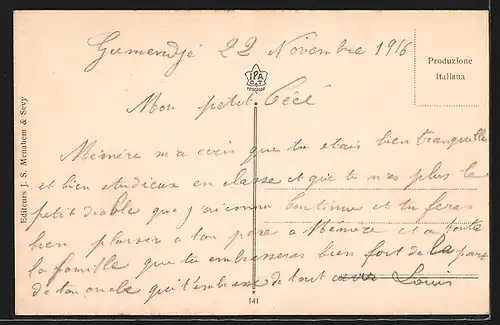 Gumendjé 22 Novembre 1916
Mon petit Cécé
Mémère m'a écris que tu étais bien tranquille
et bien studieux en classe et que tu n'as plus le
petit diable que j'ai connu Continue et tu feras
bien plaisir a ton père a Mémère et a toute
la famille que tu embrasseras bien fort de la part
de ton oncle qui t'embrasse de tout Louis
Produzione
Italiana
IPA
C T
Editeurs J. S. Menahem & Sevy
141